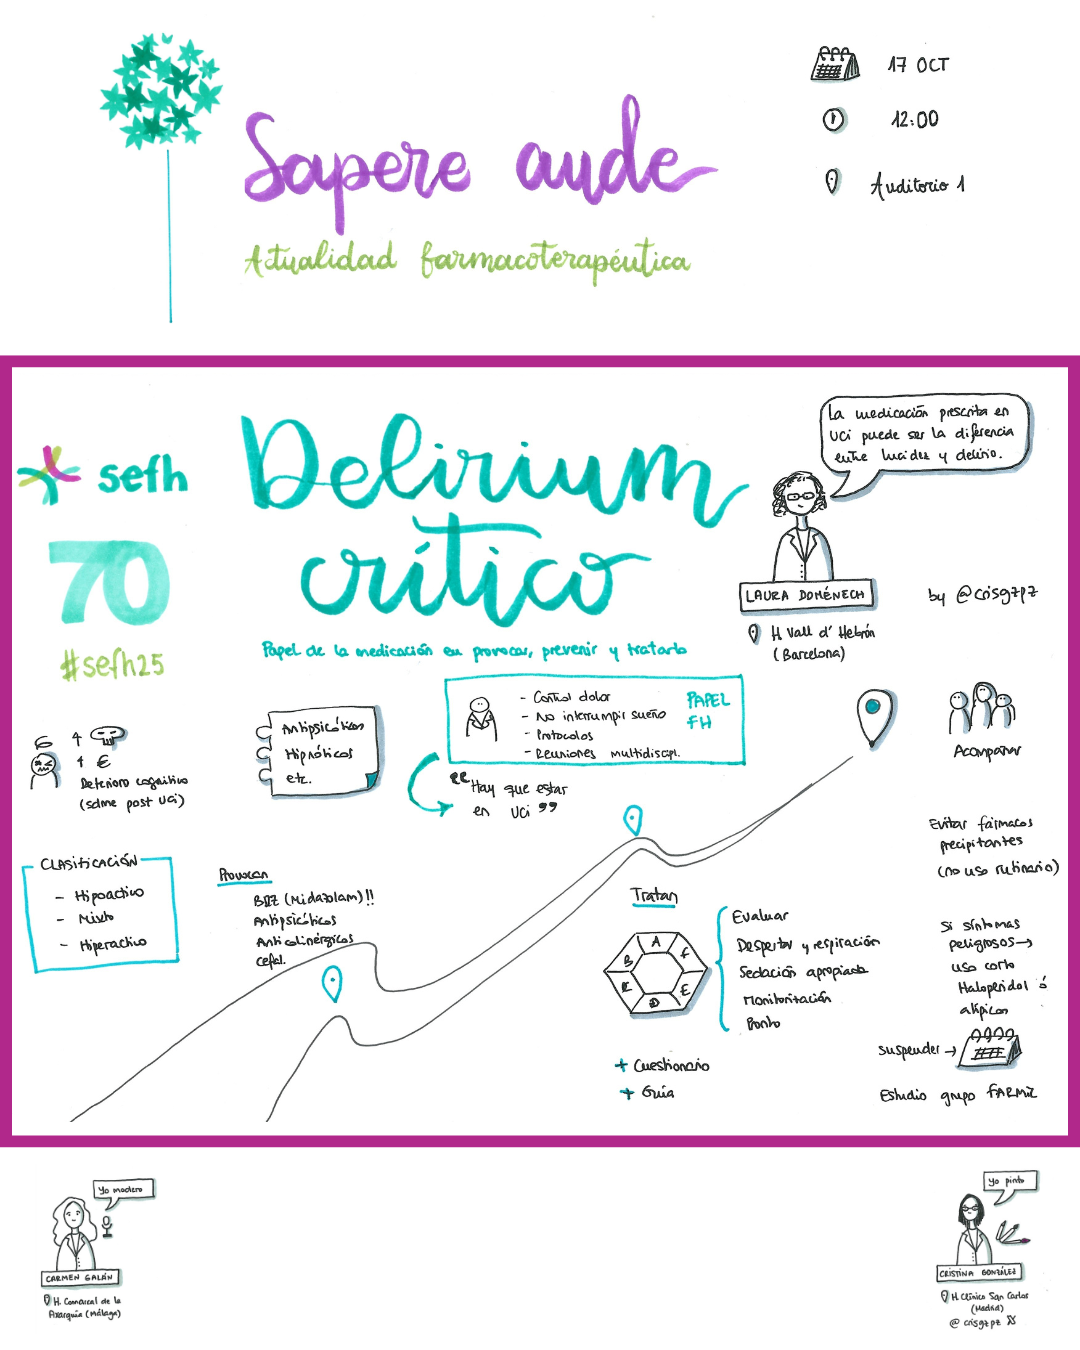 17 OCT
12:00
Auditorio 1
Sapere aude
Actualidad farmacoterapéutica
sefh
70
#sefh25
Delirium
crítico
Papel de la medicación en provocar, prevenir y tratarlo
La medicación prescrita en
UCI puede ser la diferencia
entre lucidez y delirio.
LAURA DOMÉNECH
H Vall d' Hebrón
(Barcelona)
by @crisgzpz
↑
↑ €
Deterioro cognitivo
(sdme post UCI)
Antipsicóticos
Hipnóticos
etc.
- Control dolor
- No interrumpir sueño
- Protocolos
- Reuniones multidiscipl.
PAPEL
FH
"Hay que estar
en UCI"
Acompañar
CLASIFICACIÓN
- Hipoactivo
- Mixto
- Hiperactivo
Provocan
BDZ (Midazolam)!!
Antipsicóticos
Anticolinérgicos
Cefal.
Tratan
A
B
C
D
E
F
Evaluar
Despertar y respiración
Sedación apropiada
Monitorización
Pronto
+ Cuestionario
+ Guía
Evitar fármacos
precipitantes
(no uso rutinario)
Si síntomas
peligrosos →
uso corto
Haloperidol ó
atípicos
suspender →
Estudio grupo FARMIC
Yo modero
CARMEN GALÁN
H. Comarcal de la
Axarquía (Málaga)
Yo pinto
CRISTINA GONZÁLEZ
H. Clínico San Carlos
(Madrid)
@crisgzpz